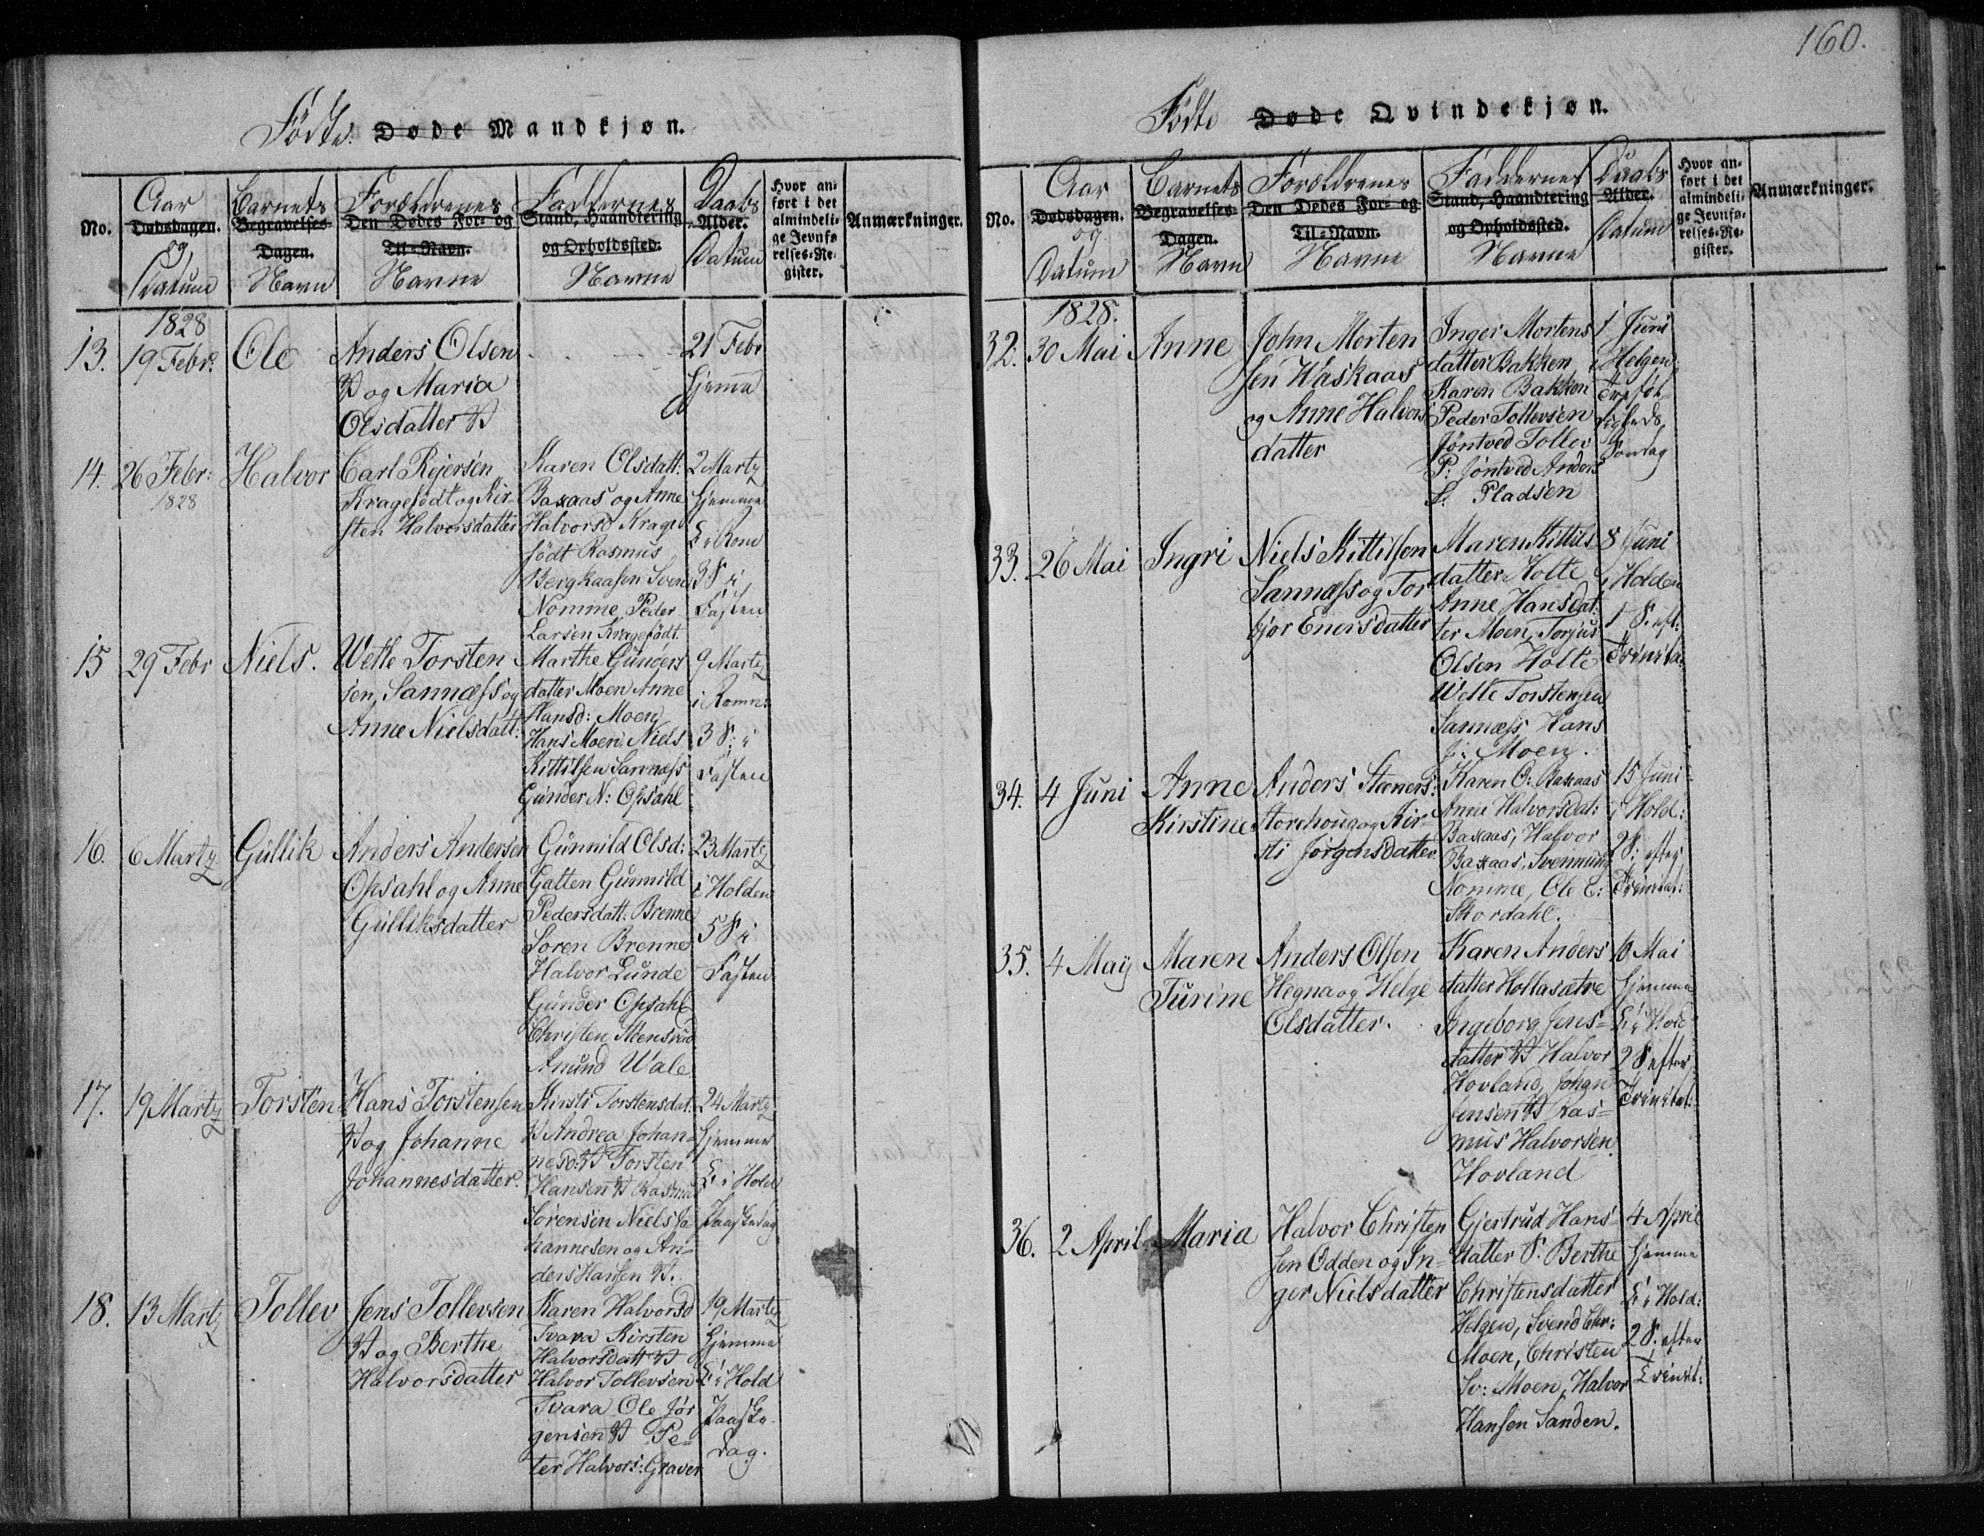 160.
Fødte. Døde Mandkjøn.
No.
Aar
Dødsdagen.
og
Datum
Barnets
Begravelses-
Dagen.
Navn
Forældrenes
Den Dødes For- og
Til-Navn.
Navne
Faddernes
Stand, Haandtering
og Opholdssted.
Navne
Daabs
Alder.
Datum
Hvor an-
ført i det
almindeli-
ge Jevnfø-
relses-Re-
gister.
Anmærkninger.
1828
13. 19 Febr: Ole
Anders Olsen
og Maria
Olsdatter
21 Febr
hjemme
14. 26 Febr:
1828
Halvor
Carl Rejersen
Kragefödt og Kir-
sten Halvorsdatter
Karen Olsdatt:
Baxaas og Anne
Halvorsd Krage
födt Rasmus
Bergkaasen Sven
Nomme, Peder
Larsen Kragefödt.
2 Martz
hjemme
i Rom
3 S i
Fasten
15 29 Febr Niels.
Wetle Torsten
sen, Sannæss og
Anne Nielsdatt:
Marthe Gunders
datter Moen Anne
Hansd: Moen
Hans Moen Niels
Kittilsen Sannæss
Gunder N: Opsahl
9 Martz
i Romn:
3 S: i
Fasten
16. 6 Martz Gullik
Anders Andersen
Opsahl og Anne
Gulliksdatter
Gunnild Olsd:
Gatten Gunnild
Pedersdatt: Brenne
Soren Brenne
Halvor Lunde
Gunder Opsahl
Christen Stensrud
Anund Wale
23 Martz
i Holden
5 S i
Fasten
17. 19 Martz Torsten
Hans Torstensen
og Johanne
Johannesdatter.
Kirsti Torstensdat
Andrea Johan-
nesd: Torsten
Hansen Rasmus
Sörensen Niels Jo
hannesen og An-
ders Hansen
24 Martz
hjemme
i Hold
Paaskedag
18. 13 Martz Tollev
Jens Tollevsen
og Berthe
Halvorsdatter
Karen Halvorsd
Tvara Kirsten
Halvorsdatt
Halvor Tollevsen
Tvara Ole Jör
gensen Pe-
ter Halvors: Graver
19 Martz
hjemme
i Hold
Paaske-
dag.
Fødte Døde Qvindekjøn.
No.
Aar
Dødsdagen.
og
Datum
Barnets
Begravelses-
Dagen.
Navn
Forældrenes
Den Dødes For- og
Til-Navn.
Navne
Faddernes
Stand, Haandtering
og Opholdssted.
Navne
Daabs
Alder.
Datum
Hvor an-
ført i det
almindeli-
ge Jevnfø-
relses-Re-
gister.
Anmærkninger.
1828.
32. 30 Mai Anne
John Morten
sen Waskaas
og Anne Halvors
datter
Inger Mortens
datter Bakken
Karen Bakken
Peder Tollevsen
Jöntved Tollev
P: Jöntved Anders
Pladsen
1 Juni
i Helgen
Trefol-
digheds
Söndag
33. 26 Mai Ingri
Niels Kittilsen
Sannæss og Tor
björ Enersdatter
Maren Kittils
datter Holte
Anne Hansdat:
ter Moen, Torjus
Olsen Holte
Wetle Torstensen
Sannæss, Hans
J: Moen.
8 Juni
i Holden
1 S. eft:
Trinita:
34. 4 Juni Anne
Kirstine
Anders Steners:
Storehoug og Kir
sti Jörgensdatter
Karen O: Baxaas
Anne Halvorsdat:
Baxaas, Halvor
Baxaas, Svennung
Nomme, Ole E:
Skordahl.
15 Juni
i Hold:
2 S: efter
Trinitat:
35. 4 Maÿ Maren
Turine
Anders Olsen
Hegna og Helge
Olsdatter.
Karen Anders
datter Hollasætre
Ingeborg Jens-
datter Halvor
Hovland, Johan
Jensen Ras-
mus Halvorsen
Hovland
6 Mai
hjemme
i Hold
2 S efter
Trinitat:
36. 2 April Maria
Halvor Christen
sen Odden og In-
ger Nielsdatter
Gjertrud Hans-
datter S. Berthe
Christensdatter
Helgen, Svend Chr:
Moen, Christen
Sv: Moen, Halvor
Hansen Sanden.
4 April
hjemme
i Hold:
2 S. efter
Trinit: